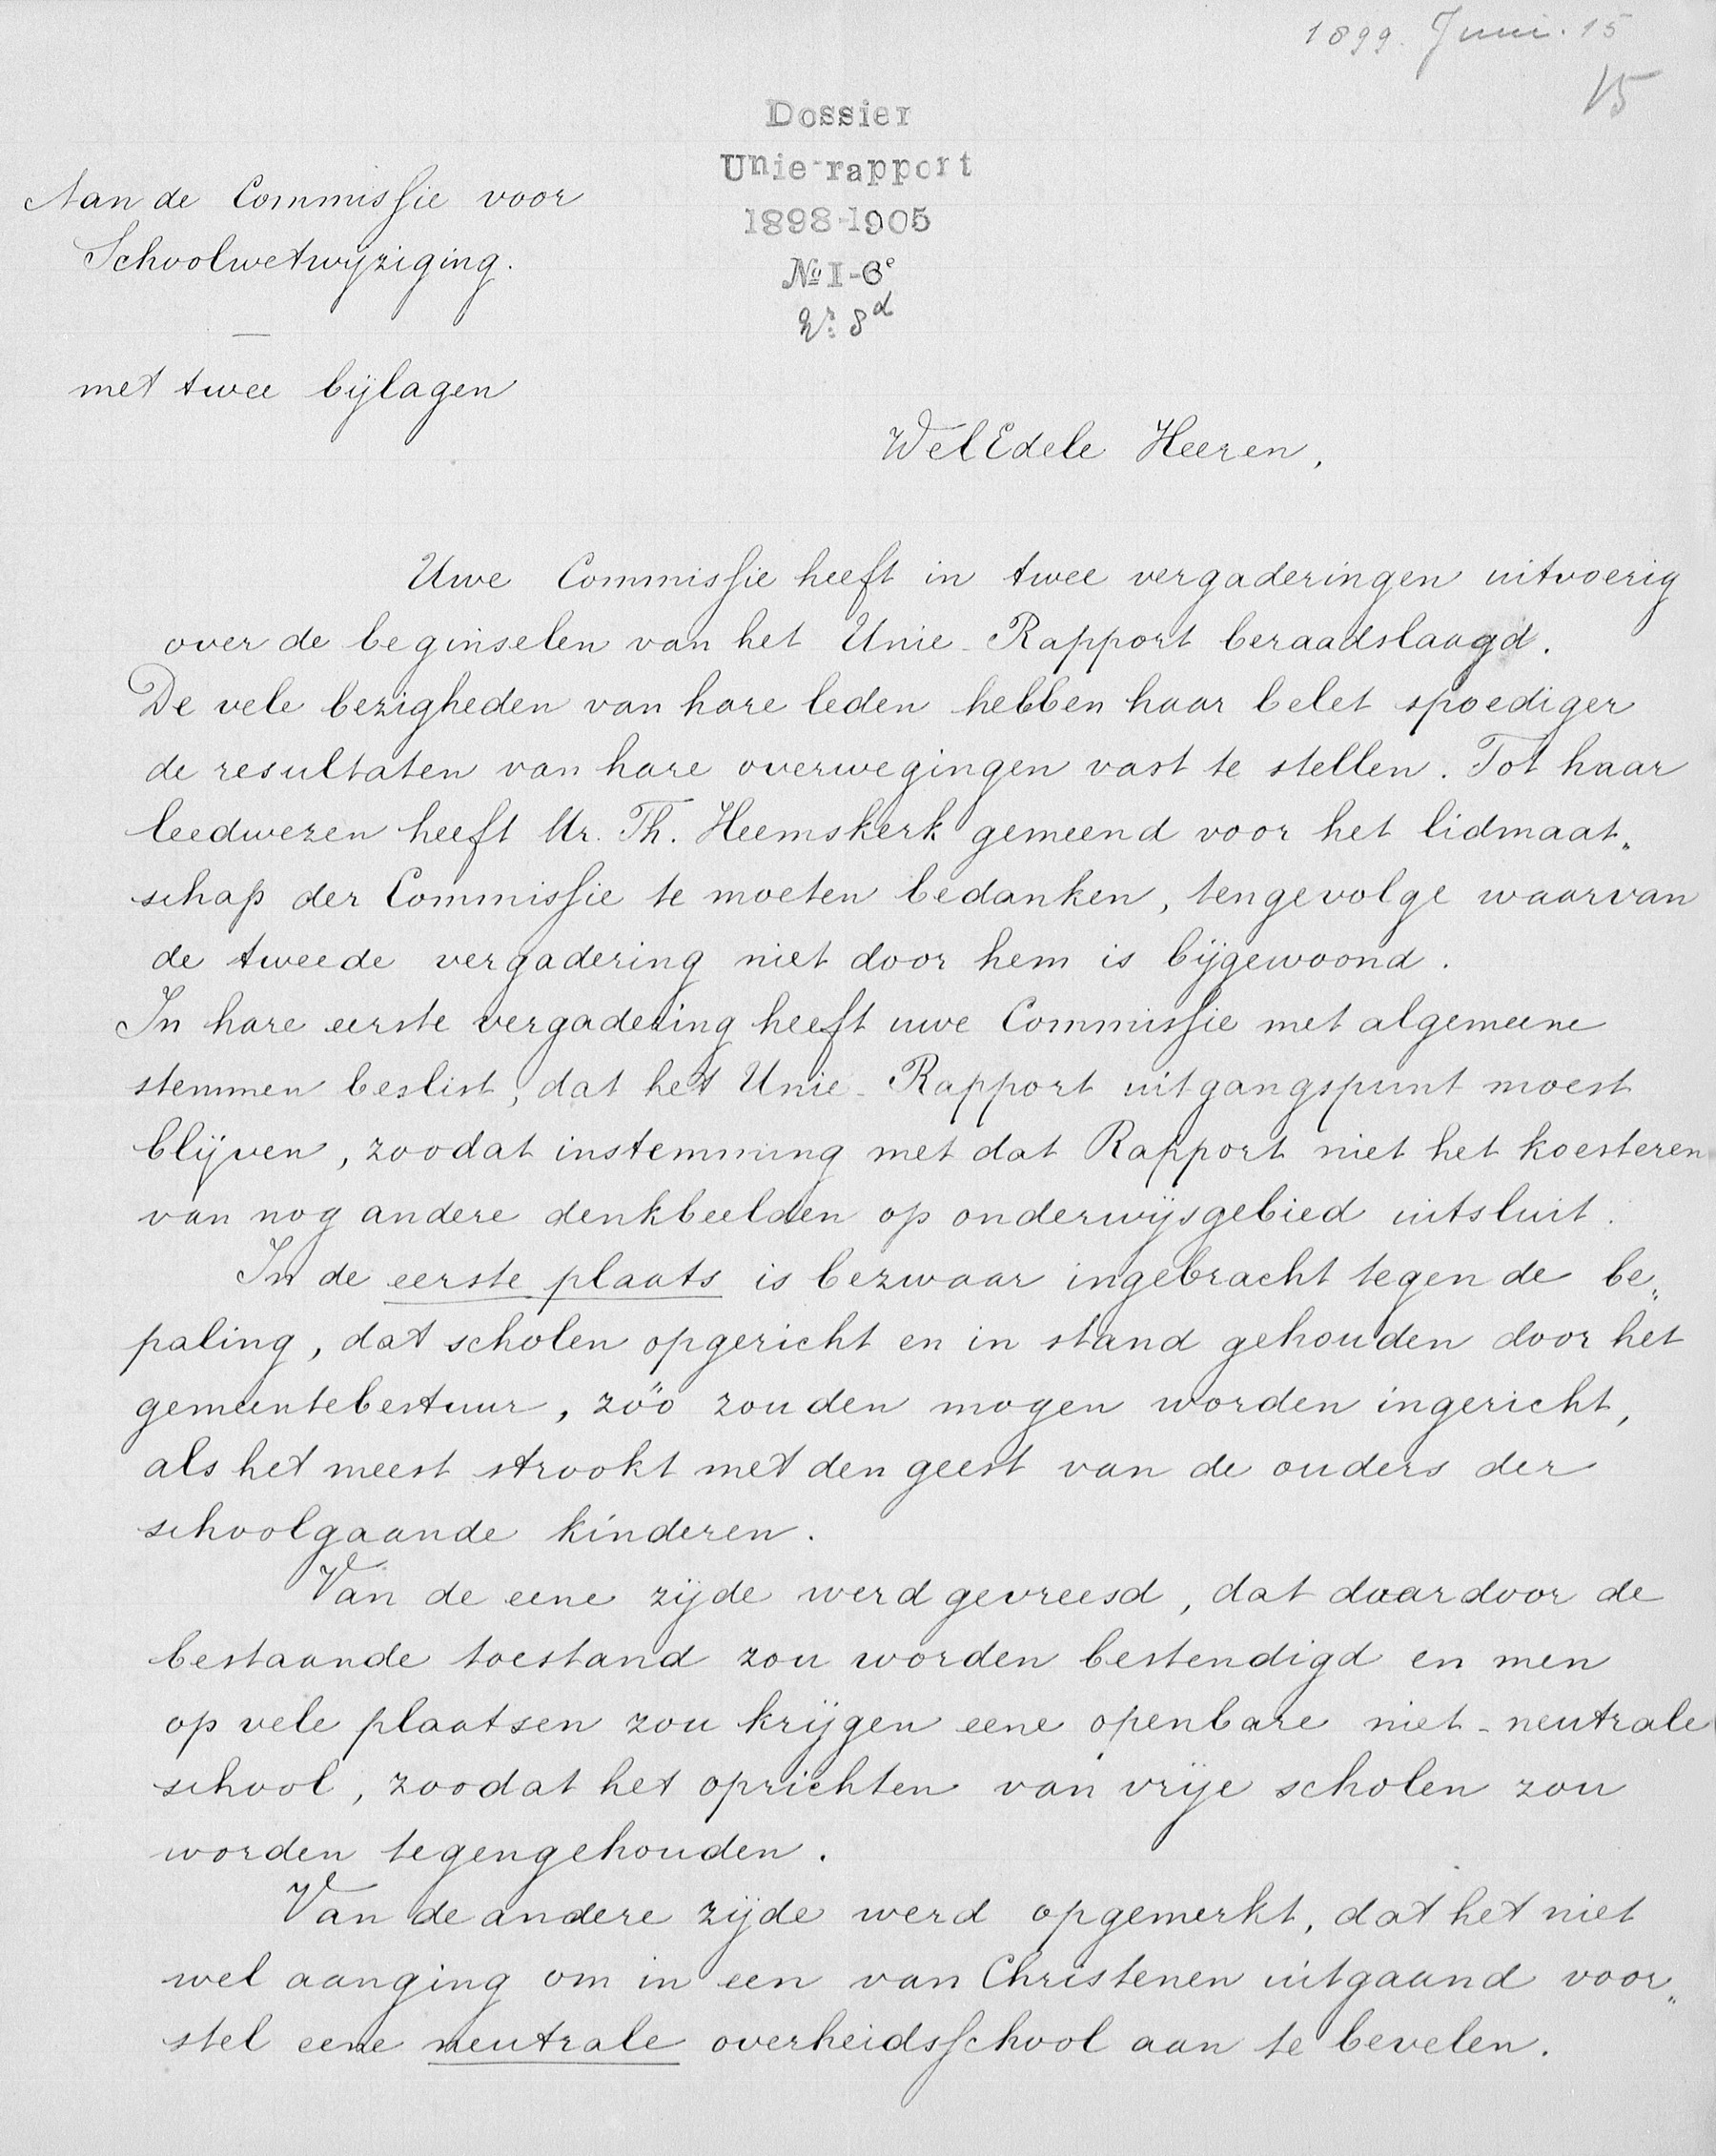 1899. Juni. 15
15
Dossier
Unie-rapport
1898-1905
№ I-6e
Nr. 8d
Aan de Commissie voor
Schoolwetwijziging.
—
met twee bijlagen
WelEdele Heeren,
Uwe Commissie heeft in twee vergaderingen uitvoerig
over de beginselen van het Unie-Rapport beraadslaagd.
De vele bezigheden van hare leden hebben haar belet spoediger
de resultaten van hare overwegingen vast te stellen. Tot haar
leedwezen heeft Mr. Th. Heemskerk gemeend voor het lidmaat„
schap der Commissie te moeten bedanken, tengevolge waarvan
de tweede vergadering niet door hem is bijgewoond.
In hare eerste vergadering heeft uwe Commissie met algemeene
stemmen beslist, dat het Unie-Rapport uitgangspunt moest
blijven, zoodat instemming met dat Rapport niet het koesteren
van nog andere denkbeelden op onderwijsgebied uitsluit.
In de eerste plaats is bezwaar ingebracht tegen de be„
paling, dat scholen opgericht en in stand gehouden door het
gemeentebestuur, zóó zouden mogen worden ingericht,
als het meest strookt met den geest van de ouders der
schoolgaande kinderen.
Van de eene zijde werd gevreesd, dat daardoor de
bestaande toestand zou worden bestendigd en men
op vele plaatsen zou krijgen eene openbare niet-neutrale
school, zoodat het oprichten van vrije scholen zou
worden tegengehouden.
Van de andere zijde werd opgemerkt, dat het niet
wel aanging om in een van Christenen uitgaand voor„
stel eene neutrale overheidsschool aan te bevelen.